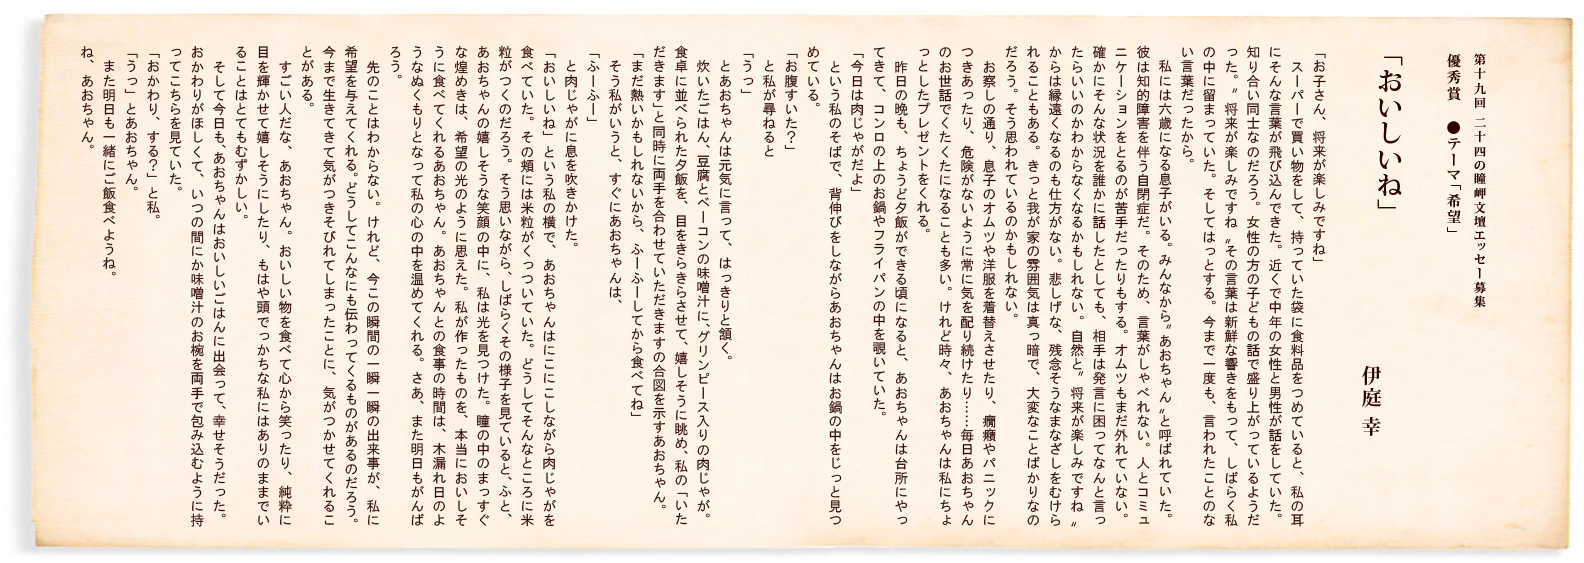 第十九回 二十四の瞳岬文壇エッセー募集
優秀賞 ●テーマ「希望」
「おいしいね」
伊庭 幸
「お子さん、将来が楽しみですね」
スーパーで買い物をして、持っていた袋に食料品をつめていると、私の耳
にそんな言葉が飛び込んできた。近くで中年の女性と男性が話をしていた。
知り合い同士なのだろう。女性の方の子どもの話で盛り上がっているようだ
った。〝将来が楽しみですね〟その言葉は新鮮な響きをもって、しばらく私
の中に留まっていた。そしてはっとする。今まで一度も、言われたことのな
い言葉だったから。
私には六歳になる息子がいる。みんなから〝あおちゃん〟と呼ばれていた。
彼は知的障害を伴う自閉症だ。そのため、言葉がしゃべれない。人とコミュ
ニケーションをとるのが苦手だったりもする。オムツもまだ外れていない。
確かにそんな状況を誰かに話したとしても、相手は発言に困ってなんと言っ
たらいいのかわからなくなるかもしれない。自然と〝将来が楽しみですね〟
からは縁遠くなるのも仕方がない。悲しげな、残念そうなまなざしをむけら
れることもある。きっと我が家の雰囲気は真っ暗で、大変なことばかりなの
だろう。そう思われているのかもしれない。
お察しの通り、息子のオムツや洋服を着替えさせたり、癇癪やパニックに
つきあったり、危険がないように常に気を配り続けたり……毎日あおちゃん
のお世話でくたくたになることも多い。けれど時々、あおちゃんは私にちょ
っとしたプレゼントをくれる。
昨日の晩も、ちょうど夕飯ができる頃になると、あおちゃんは台所にやっ
てきて、コンロの上のお鍋やフライパンの中を覗いていた。
「今日は肉じゃがだよ」
という私のそばで、背伸びをしながらあおちゃんはお鍋の中をじっと見つ
めている。
「お腹すいた？」
と私が尋ねると
「うっ」
とあおちゃんは元気に言って、はっきりと頷く。
炊いたごはん、豆腐とベーコンの味噌汁に、グリンピース入りの肉じゃが。
食卓に並べられた夕飯を、目をきらきらさせて、嬉しそうに眺め、私の「いた
だきます」と同時に両手を合わせていただきますの合図を示すあおちゃん。
「まだ熱いかもしれないから、ふーふーしてから食べてね」
そう私がいうと、すぐにあおちゃんは、
「ふーふー」
と肉じゃがに息を吹きかけた。
「おいしいね」という私の横で、あおちゃんはにこにこしながら肉じゃがを
食べていた。その頬には米粒がくっついていた。どうしてそんなところに米
粒がつくのだろう。そう思いながら、しばらくその様子を見ていると、ふと、
あおちゃんの嬉しそうな笑顔の中に、私は光を見つけた。瞳の中のまっすぐ
な煌めきは、希望の光のように思えた。私が作ったものを、本当においしそ
うに食べてくれるあおちゃん。あおちゃんとの食事の時間は、木漏れ日のよ
うなぬくもりとなって私の心の中を温めてくれる。さあ、また明日もがんば
ろう。
先のことはわからない。けれど、今この瞬間の一瞬一瞬の出来事が、私に
希望を与えてくれる。どうしてこんなにも伝わってくるものがあるのだろう。
今まで生きてきて気がつきそびれてしまったことに、気がつかせてくれるこ
とがある。
すごい人だな、あおちゃん。おいしい物を食べて心から笑ったり、純粋に
目を輝かせて嬉しそうにしたり、もはや頭でっかちな私にはありのままでい
ることはとてもむずかしい。
そして今日も、あおちゃんはおいしいごはんに出会って、幸せそうだった。
おかわりがほしくて、いつの間にか味噌汁のお椀を両手で包み込むように持
ってこちらを見ていた。
「おかわり、する？」と私。
「うっ」とあおちゃん。
また明日も一緒にご飯食べようね。
ね、あおちゃん。